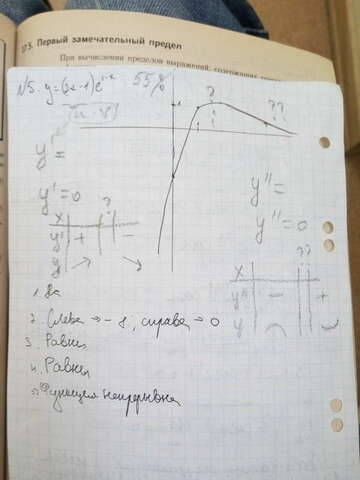 § 3. Первый замечательный предел
При вычислении пределов выражений, содержащих
№5. y=(3x-1)e^(1-x) 55%
?
??
y' =
y' = 0
?
x
y' + -
y
y'' =
y'' = 0
??
x
y'' - +
y
1. Да
2. Слева → -8; справа → 0
3. Равны
4. Равны
5. Функция непрерывна